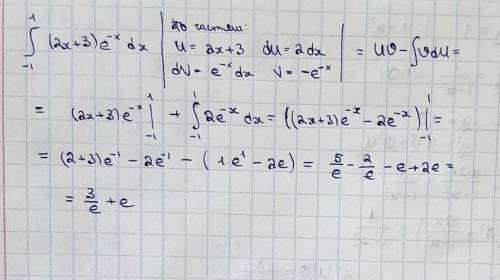 ∫₋₁¹ (2x+3)e⁻ˣ dx | по частям: u = 2x+3 du = 2dx dV = e⁻ˣdx V = -e⁻ˣ | = UV - ∫VdU =
= (2x+3)e⁻ˣ |₋₁¹ + ∫₋₁¹ 2e⁻ˣ dx = ((2x+3)e⁻ˣ - 2e⁻ˣ) |₋₁¹ =
= (2+3)e⁻¹ - 2e⁻¹ - (1·e¹ - 2e) = 5/e - 2/e - e + 2e =
= 3/e + e